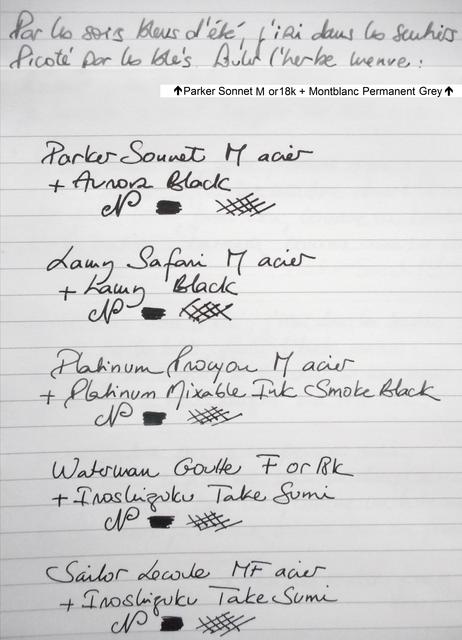 Par les soirs bleus d'été, j'irai dans les sentiers
Picoté par les blés. fouler l'herbe menue :
↑Parker Sonnet M or18k + Montblanc Permanent Grey↑
Parker Sonnet M acier
+ Aurora Black
Lamy Safari M acier
+ Lamy Black
Platinum Procyon M acier
+ Platinum Mixable Ink Smoke Black
Waterman Goutte F or 18k
+ Iroshizuku Take Sumi
Sailor Lecoule MF acier
+ Iroshizuku Take Sumi